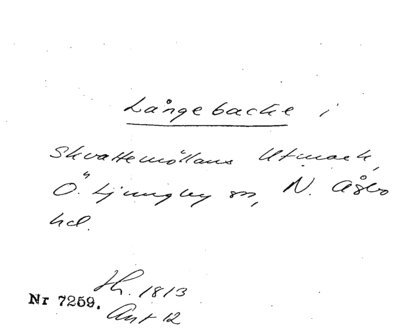 Långebacke i
Skvattemöllans Utmark,
Ö. Ljungby sn, N. Åsbo
hd.
Nr 7259.
1813
Ant 12